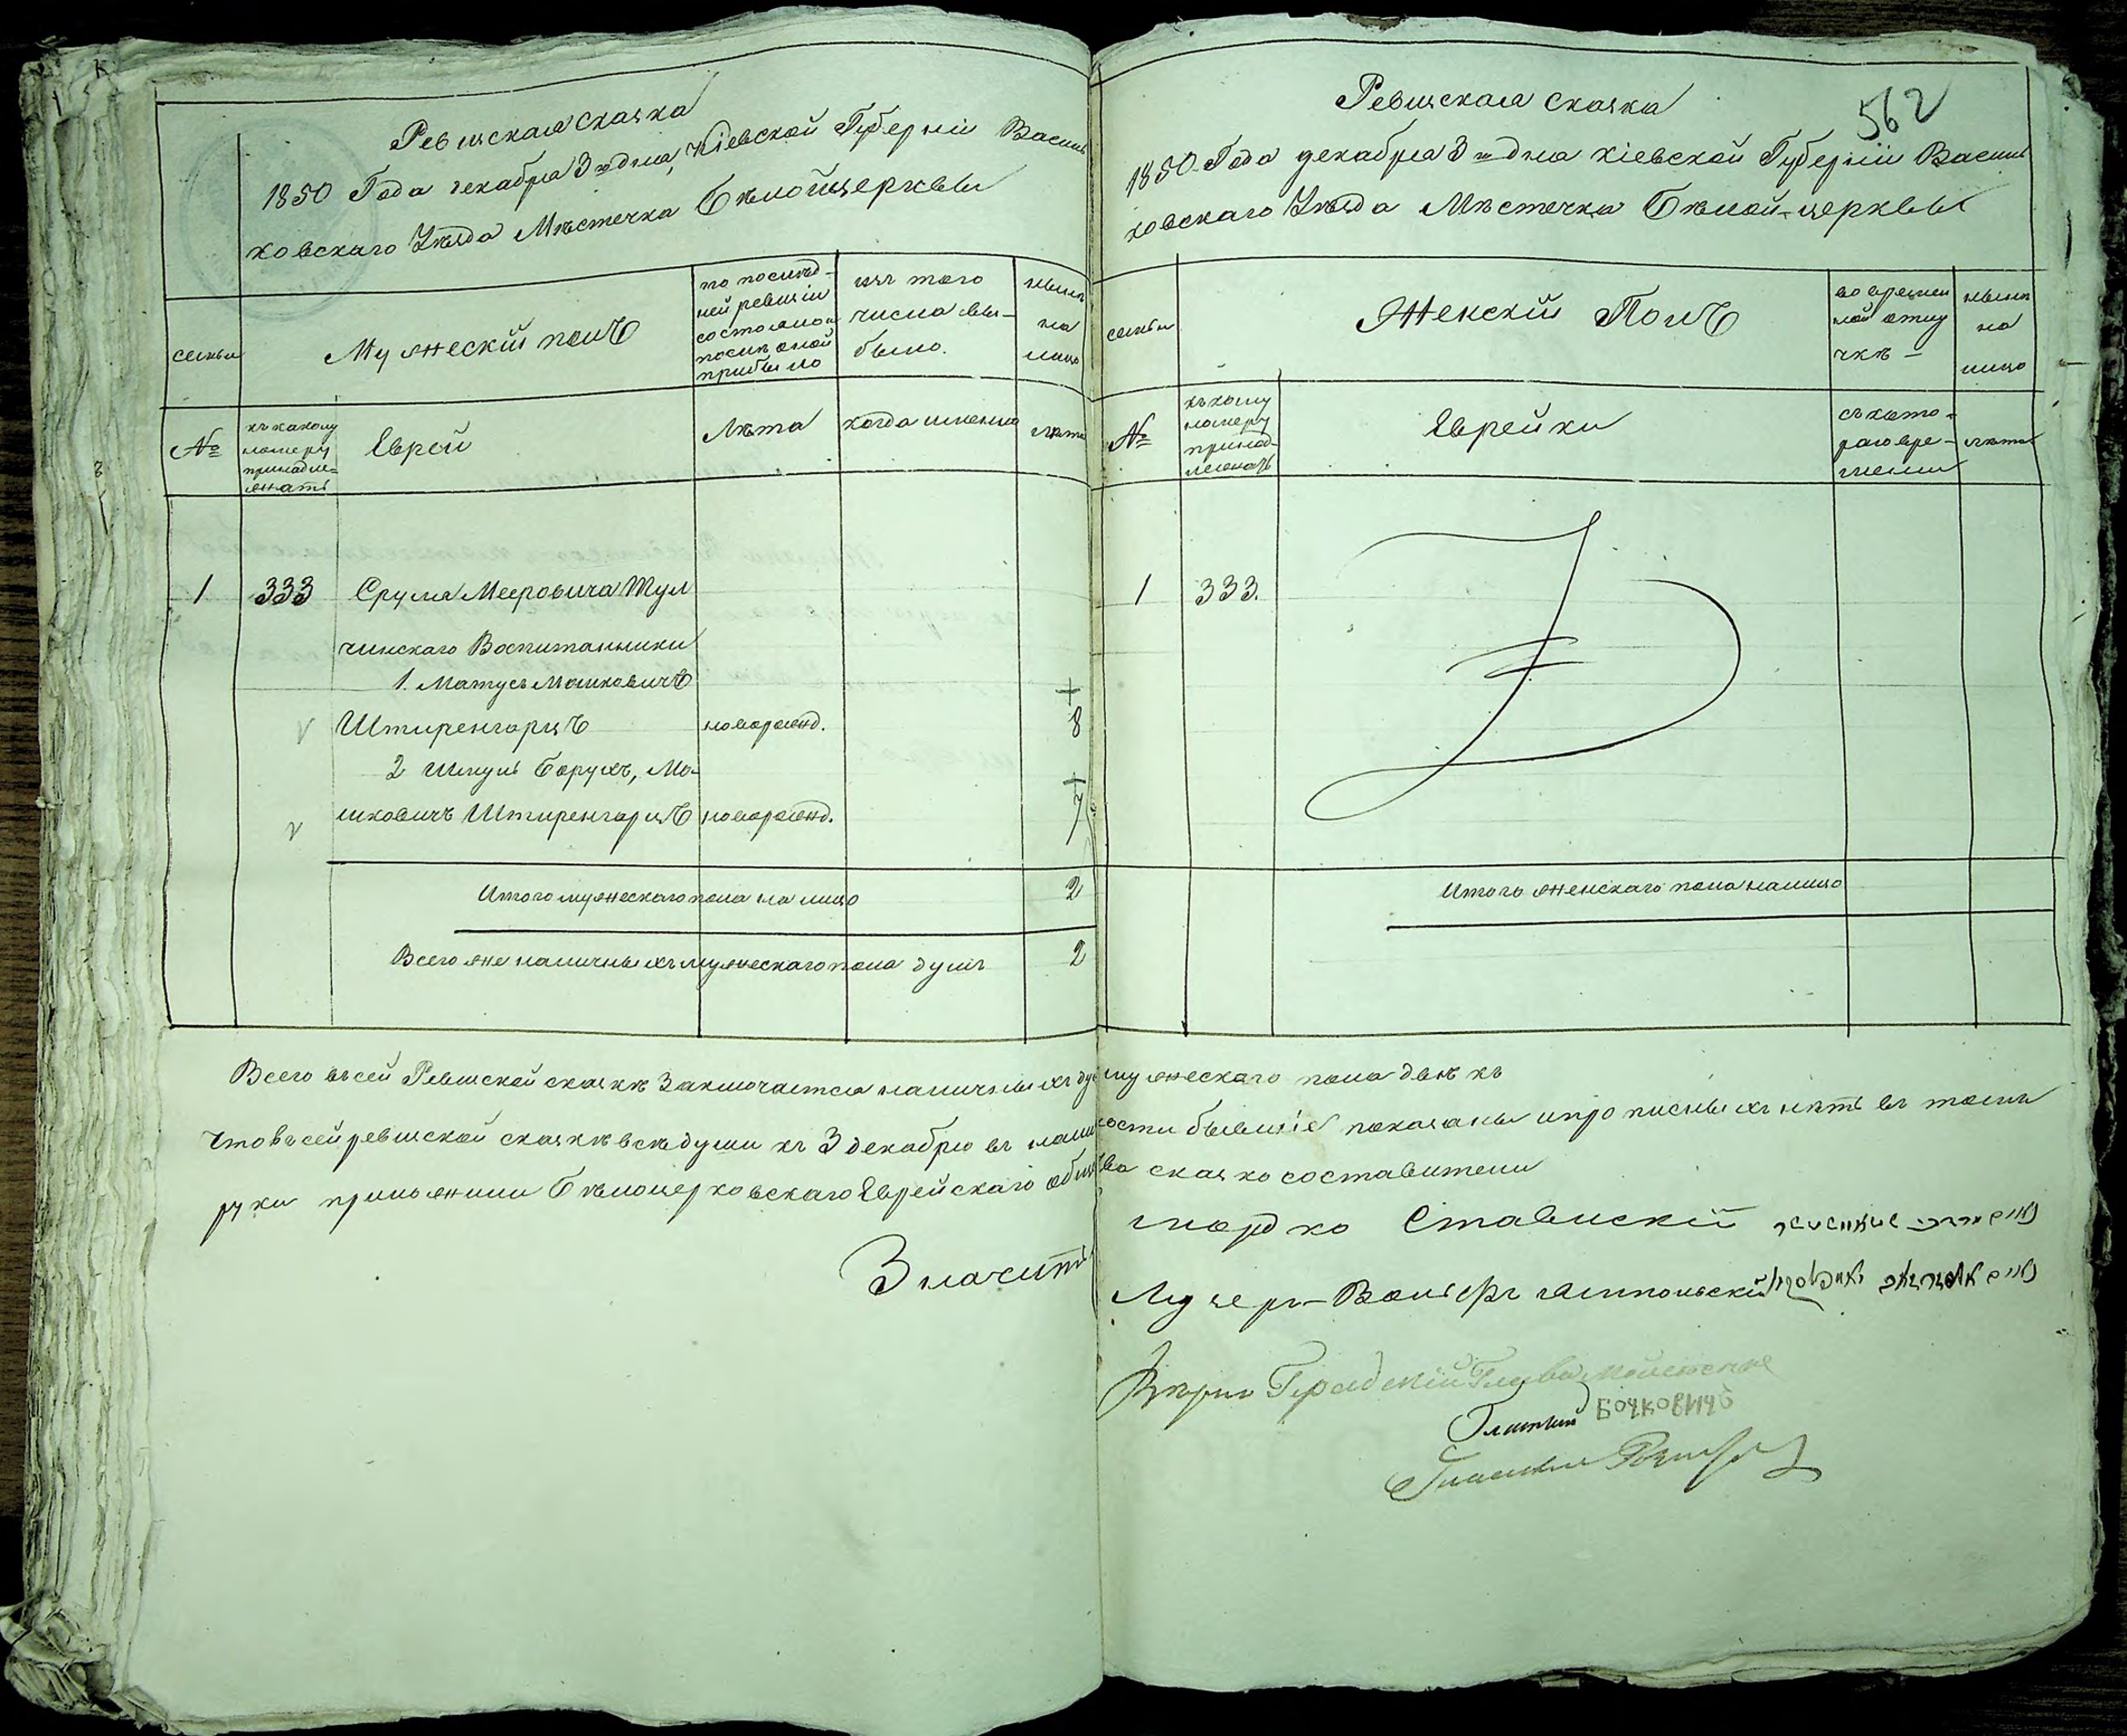 Ревизская сказка
1850 Года декабря 3го дня, Кіевской Губерніи Василь
ковскаго Уѣзда Мѣстечка Бѣлойцеркви
семьи
Мужескій полъ
по послѣд-
ней ревизіи
состояло и
послѣ оной
прибыло
изъ того
числа вы-
было.
нынѣ
на
лицо
№
къ какому
номеру
принадле-
жатъ
Еврей
Лѣта
когда именно
лѣта
1 333 Сруля Мееровича Тул
чинскаго Воспитанники
1. Матусь Мошковичъ
Штиренгарцъ новорожд. 8
2 Шмуль Борухъ, Мо-
шковичъ Штиренгарцъ новорожд. 7
Итого мужескаго пола на лицо 2
Всего же наличныхъ мужескаго пола душъ 2
562
Ревизская сказка
1850 Года декабря 3го дня Кіевской Губерніи Василь
ковскаго Уѣзда Мѣстечка Бѣлой-церквы
семьи
Женскій Полъ
во времен
ной отлу
чкѣ —
нынѣ
на
лицо
№
къ кому
номеру
принад-
лежатъ
Еврейки
съ кото-
раго вре-
мени
лѣта
1 333.
Итого женскаго пола налицо
Всего въ сей Ревизской сказкѣ Заключается наличныхъ ду мужескаго пола двѣ къ
Что въ сей ревизской сказкѣ всѣ души къ 3 декабрю въ налич ности бывшіе показаны и прописныхъ нѣтъ въ томъ
руки приложили Бѣлоцерковскаго Еврейскаго общ ва сказко составители
Значитъ
мордко Ставискій
Лузеръ-Вольфъ Ямпольскій
Городскій Глава
Гласный Бочковичъ
Гласный